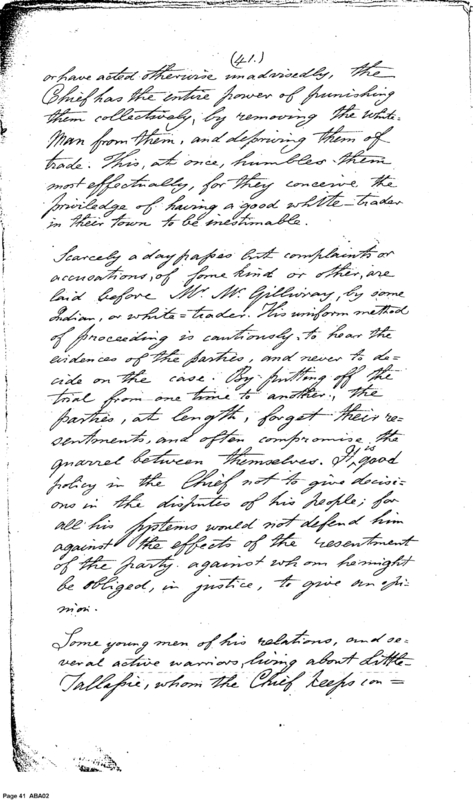 (41.)
or have acted otherwise unadvisedly, the
Chief has the entire power of punishing
them collectively, by removing the white=
Man from them, and depriving them of
trade. This, at once, humbles them
most effectually, for they conceive the
priviledge of having a good white-trader
in their town to be inestimable.
Scarcely a day passes but complaints or
accusations, of some kind or other, are
laid before Mr. McGillivray, by some
Indian, or white=trader. His uniform method
of proceeding is cautiously, to hear the
evidences of the parties, and never to de=
cide on the case. By putting off the
trial from one time to another, the
parties, at length, forget their re=
sentments, and often compromise the
quarrel between themselves. It is good
policy in the Chief not to give decisi=
ons in the disputes of his people; for
all his systems would not defend him
against the effects of the resentment
of the party against whom he might
be obliged, in justice, to give an opi=
nion.
Some young men of his relations, and se=
veral active warriors living about Little=
Tallassie, whom the Chief keeps con=
Page 41 ABA02